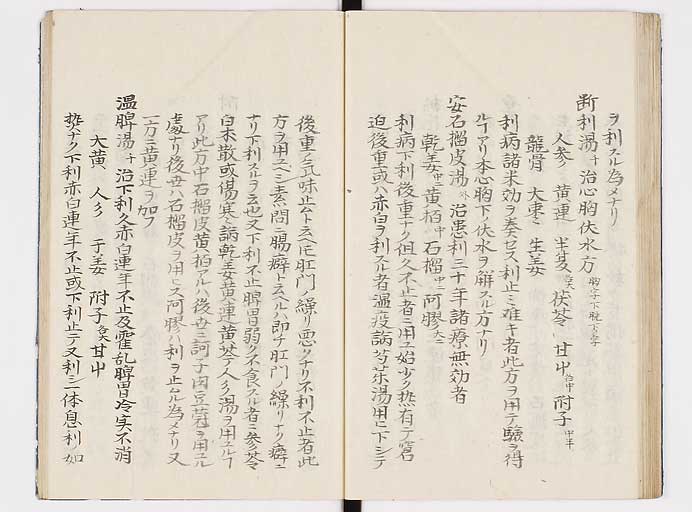 ヲ利スル為メナリ
断利湯 治心胸伏水方
人参 黄連 半夏 茯苓 甘中 附子
龍骨 大棗 生姜
利病諸米効ヲ奏セス利止ミ難キ者此方ヲ用テ驗ヲ得
ルアリ本心胸下伏水ヲ解スル方ナリ
安石榴皮湯 治患利三十年諸療無効者
乾姜 黄栢 石榴 阿膠
利病下利後重ナク但久不止者ニ用ユ始少ク热有テ窘
迫後重或ハ赤白ヲ利スル者温疫論芍薬湯用ヒ下シテ
後重ノ気味止ムト云ヘ𪜈肛門ノ繰リ悪クチリ不利不止者此
方ヲ用ユヘシ素問ニ腸癖ト云ヘルハ即チ肛門ノ繰リナリ癖ニ
ナリ下利スルヲ云也又下利不止脾胃弱ク不食スル者ニ参苓
白术散或傷寒ニ論乾姜黄連黄芩人参湯ヲ用ユルフ
アリ此方中石榴皮黄栢アルハ後世ニ訶子肉豆蔲ヲ用ユル
處ナリ後世ハ石榴皮ヲ用ヒス阿膠ハ利ヲ止ムル為メナリ又
一方ニ黄連ヲ加フ
温脾湯 治下利久赤白連年不止及霍乱脾胃冷実不消
大黄 人参 干姜 附子 甘中
热ナク下利赤白連年不止或下利止テ又利シ一体息利如